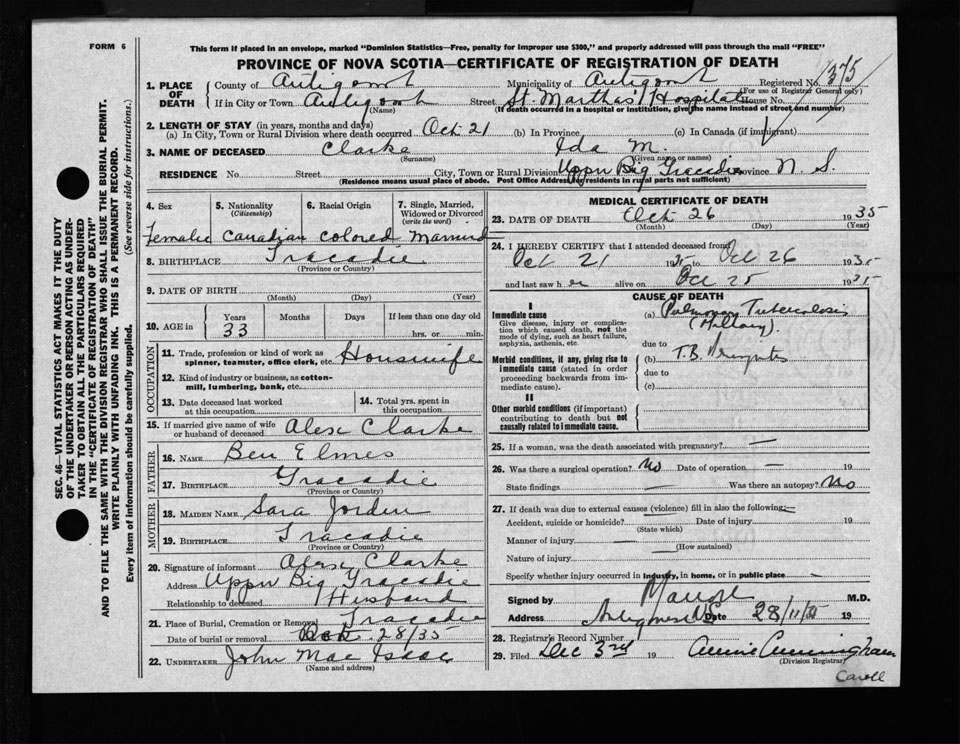 FORM 6
This form if placed in an envelope, marked "Dominion Statistics—Free, penalty for improper use $300," and properly addressed will pass through the mail "FREE"
PROVINCE OF NOVA SCOTIA—CERTIFICATE OF REGISTRATION OF DEATH
1. PLACE OF DEATH County of Antigont Municipality of Antigont Registered No. 1375
(For use of Registrar General only)
If in City or Town Antigont Street St. Martha's Hospital House No.
(If death occurred in a hospital or institution, give the name instead of street and number)
2. LENGTH OF STAY (in years, months and days)
(a) In City, Town or Rural Division where death occurred Oct 21 (b) In Province (c) In Canada (if immigrant)
3. NAME OF DECEASED Clarke Ida M.
(Surname) (Given name or names)
RESIDENCE No. Street City, Town or Rural Division Uppr Big Tracadie Province N. S.
(Residence means usual place of abode. Post Office Address of residents in rural parts not sufficient)
4. Sex 5. Nationality (Citizenship) 6. Racial Origin 7. Single, Married, Widowed or Divorced (write the word)
Female Canadian Colored Married
8. BIRTHPLACE Tracadie
(Province or Country)
9. DATE OF BIRTH
(Month) (Day) (Year)
10. AGE in Years Months Days If less than one day old
33 hrs. or min.
OCCUPATION
11. Trade, profession or kind of work as spinner, teamster, office clerk, etc. Housewife
12. Kind of industry or business, as cotton-mill, lumbering, bank, etc.
13. Date deceased last worked at this occupation 14. Total yrs. spent in this occupation
15. If married give name of wife or husband of deceased Alex Clarke
FATHER
16. NAME Ben Elmes
17. BIRTHPLACE Tracadie
(Province or Country)
MOTHER
18. MAIDEN NAME Sara Jorden
19. BIRTHPLACE Tracadie
(Province or Country)
20. Signature of informant Alex Clarke
Address Uppr Big Tracadie
Relationship to deceased Husband
21. Place of Burial, Cremation or Removal Tracadie
Date of burial or removal Oct. 28/35
22. UNDERTAKER John Mac Isaac
(Name and address)
MEDICAL CERTIFICATE OF DEATH
23. DATE OF DEATH Oct 26 1935
(Month) (Day) (Year)
24. I HEREBY CERTIFY that I attended deceased from
Oct 21 1935 to Oct 26 1935
and last saw h er alive on Oct 25 1935
CAUSE OF DEATH
I
Immediate cause
Give disease, injury or complication which caused death, not the mode of dying, such as heart failure, asphyxia, asthenia, etc.
(a) Pulmonary Tuberculosis
due to
Morbid conditions, if any, giving rise to immediate cause (stated in order proceeding backwards from immediate cause).
(b) T.B.
due to
(c)
II
Other morbid conditions (if important) contributing to death but not causally related to immediate cause.
25. If a woman, was the death associated with pregnancy? —
26. Was there a surgical operation? No Date of operation — 19
State findings — Was there an autopsy? No
27. If death was due to external causes (violence) fill in also the following:—
Accident, suicide or homicide? — Date of injury 19
(State which)
Manner of injury —
(How sustained)
Nature of injury —
Specify whether injury occurred in industry, in home, or in public place —
Signed by M.D.
Address Date 28/11/35 19
28. Registrar's Record Number
29. Filed Dec 3rd 19 Annie Cunningham
(Division Registrar)
SEC. 46—VITAL STATISTICS ACT MAKES IT THE DUTY
OF THE UNDERTAKER OR PERSON ACTING AS UNDER-
TAKER TO OBTAIN ALL THE PARTICULARS REQUIRED
IN THE "CERTIFICATE OF REGISTRATION OF DEATH"
AND TO FILE THE SAME WITH THE DIVISION REGISTRAR WHO SHALL ISSUE THE BURIAL PERMIT.
WRITE PLAINLY WITH UNFADING INK. THIS IS A PERMANENT RECORD.
Every item of information should be carefully supplied. (See reverse side for instructions.)